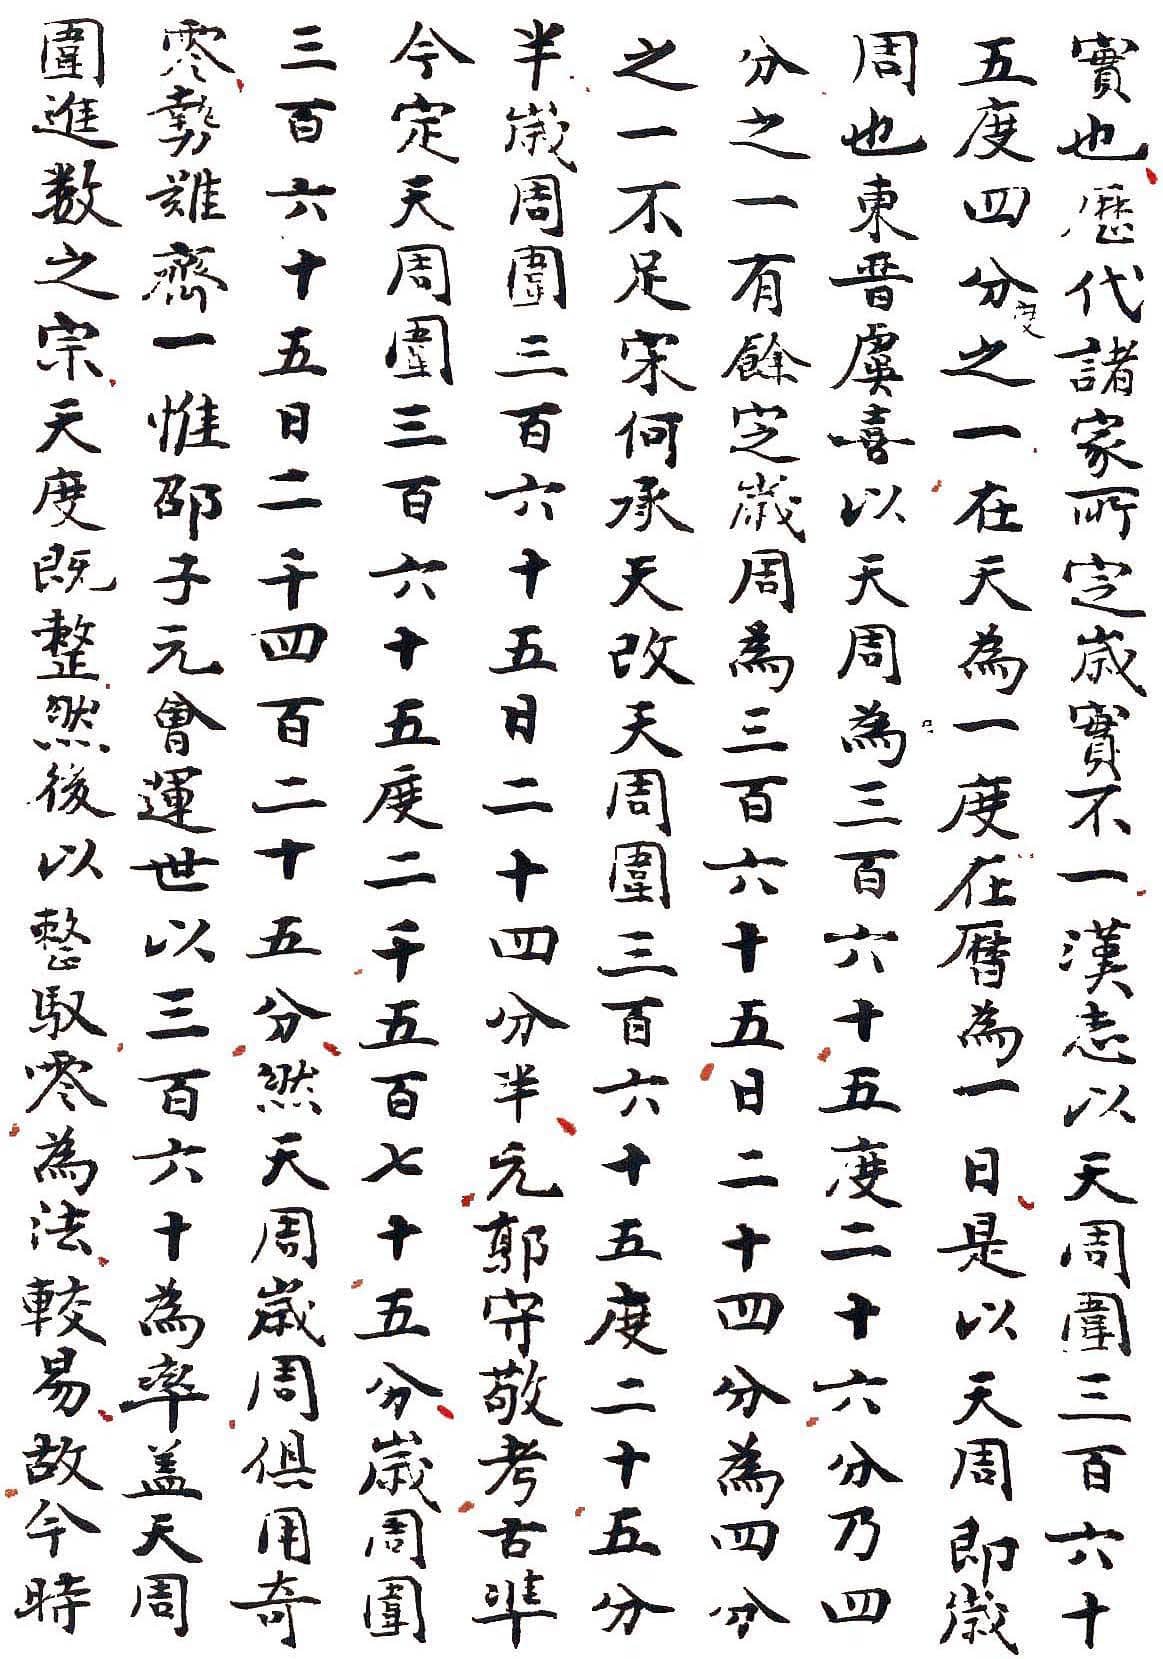 實也歷代諸家所定歲實不一漢志以天周圍三百六十
五度四分度之一在天為一度在曆為一日是以天周即歲
周也東晉虞喜以天周為三百六十五度二十六分乃四
分之一有餘定歲周為三百六十五日二十四分為四分
之一不足宋何承天改天周圍三百六十五度二十五分
半歲周圍三百六十五日二十四分半元郭守敬考古準
今定天周圍三百六十五度二千五百七十五分歲周圍
三百六十五日二千四百二十五分然天周歲周俱用奇
零勢難齊一惟邵子元會運世以三百六十為率盖天周
圍進数之宗天度既整然後以整馭零為法較易故今時